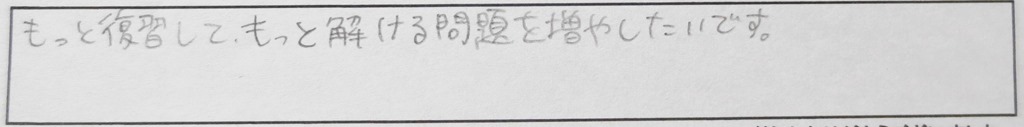 もっと復習して、もっと解ける問題を増やしたいです。